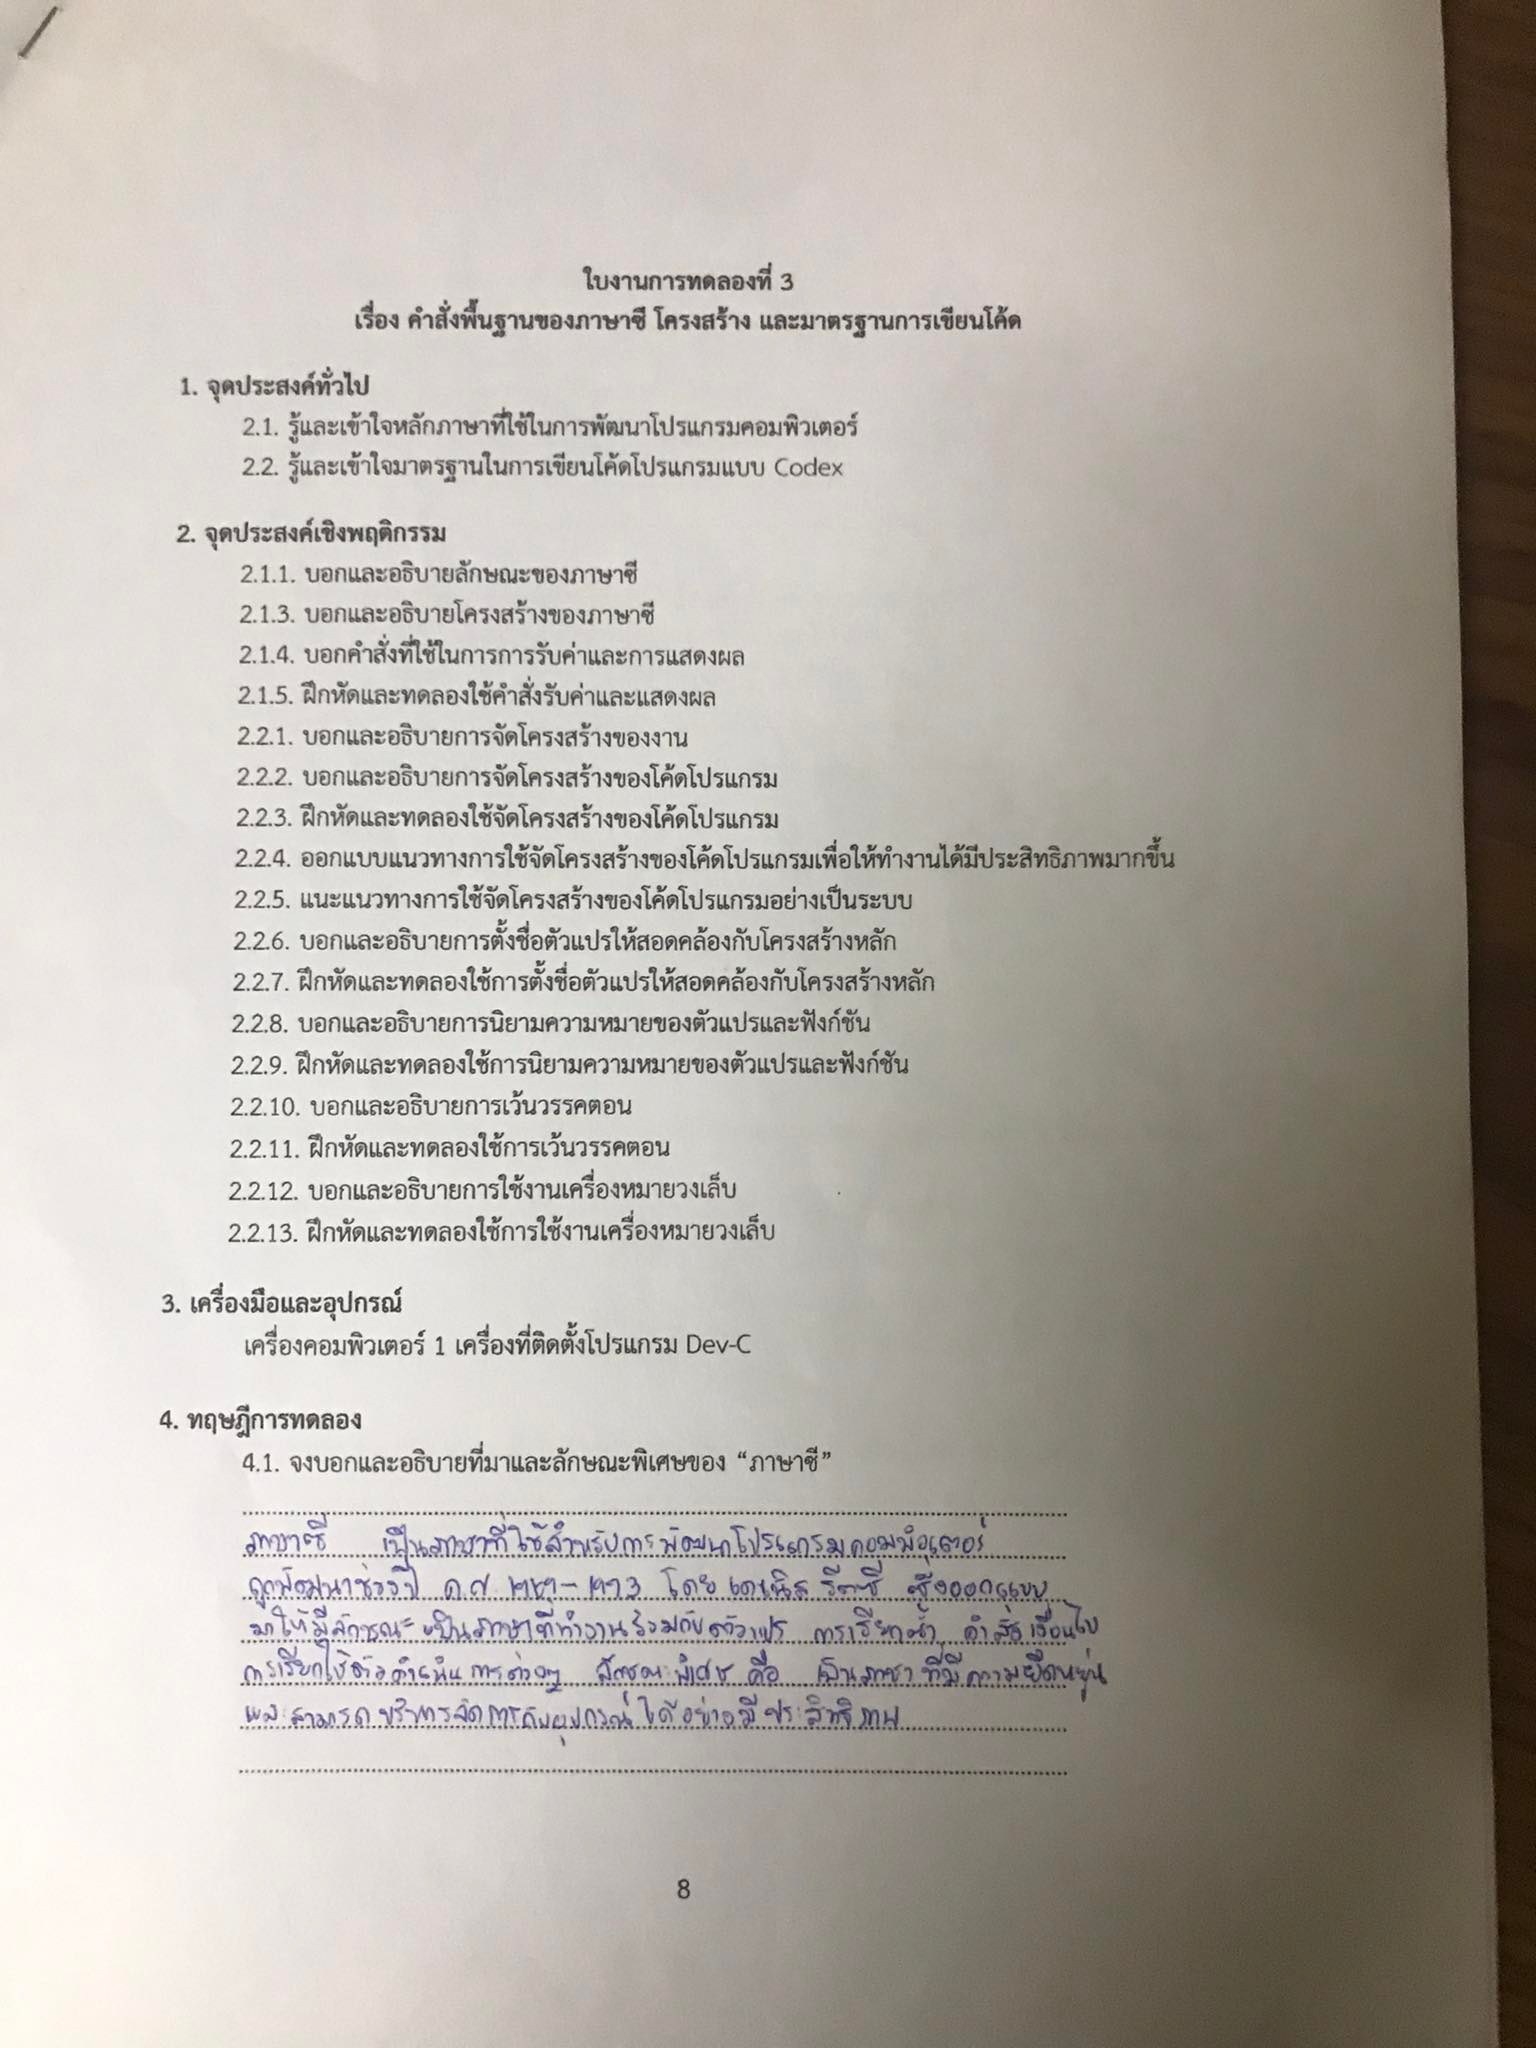 ใบงานการทดลองที่ 3
เรื่อง คำสั่งพื้นฐานของภาษาซี โครงสร้าง และมาตรฐานการเขียนโค้ด
1. จุดประสงค์ทั่วไป
2.1. รู้และเข้าใจหลักภาษาที่ใช้ในการพัฒนาโปรแกรมคอมพิวเตอร์
2.2. รู้และเข้าใจมาตรฐานในการเขียนโค้ดโปรแกรมแบบ Codex
2. จุดประสงค์เชิงพฤติกรรม
2.1.1. บอกและอธิบายลักษณะของภาษาซี
2.1.3. บอกและอธิบายโครงสร้างของภาษาซี
2.1.4. บอกคำสั่งที่ใช้ในการการรับค่าและการแสดงผล
2.1.5. ฝึกหัดและทดลองใช้คำสั่งรับค่าและแสดงผล
2.2.1. บอกและอธิบายการจัดโครงสร้างของงาน
2.2.2. บอกและอธิบายการจัดโครงสร้างของโค้ดโปรแกรม
2.2.3. ฝึกหัดและทดลองใช้จัดโครงสร้างของโค้ดโปรแกรม
2.2.4. ออกแบบแนวทางการใช้จัดโครงสร้างของโค้ดโปรแกรมเพื่อให้ทำงานได้มีประสิทธิภาพมากขึ้น
2.2.5. แนะแนวทางการใช้จัดโครงสร้างของโค้ดโปรแกรมอย่างเป็นระบบ
2.2.6. บอกและอธิบายการตั้งชื่อตัวแปรให้สอดคล้องกับโครงสร้างหลัก
2.2.7. ฝึกหัดและทดลองใช้การตั้งชื่อตัวแปรให้สอดคล้องกับโครงสร้างหลัก
2.2.8. บอกและอธิบายการนิยามความหมายของตัวแปรและฟังก์ชัน
2.2.9. ฝึกหัดและทดลองใช้การนิยามความหมายของตัวแปรและฟังก์ชัน
2.2.10. บอกและอธิบายการเว้นวรรคตอน
2.2.11. ฝึกหัดและทดลองใช้การเว้นวรรคตอน
2.2.12. บอกและอธิบายการใช้งานเครื่องหมายวงเล็บ
2.2.13. ฝึกหัดและทดลองใช้การใช้งานเครื่องหมายวงเล็บ
3. เครื่องมือและอุปกรณ์
เครื่องคอมพิวเตอร์ 1 เครื่องที่ติดตั้งโปรแกรม Dev-C
4. ทฤษฎีการทดลอง
4.1. จงบอกและอธิบายที่มาและลักษณะพิเศษของ “ภาษาซี”
ภาษาซี เป็นภาษาที่ใช้สำหรับการพัฒนาโปรแกรมคอมพิวเตอร์
ถูกพัฒนาช่วงปี ค.ศ. โดย เดนนิส ริตชี่ ซึ่งออกแบบ
มาให้มีลักษณะเป็นภาษาที่ทำงานร่วมกับตัวแปร การเรียกซ้ำ คำสั่งเงื่อนไข
การเรียกใช้ตัวดำเนินการต่างๆ ลักษณะพิเศษ คือ เป็นภาษาที่มีความยืดหยุ่น
และสามารถบริหารจัดการกับอุปกรณ์ได้อย่างมีประสิทธิภาพ
8